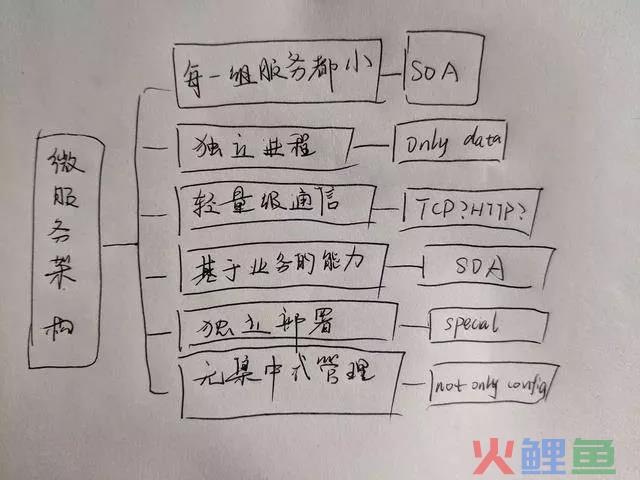 微服务架构
每一组服务都小
SOA
独立进程
only data
轻量级通信
TCP?HTTP?
基于业务的能力
SOA
独立部署
special
无集中式管理
not only config
火鲤鱼